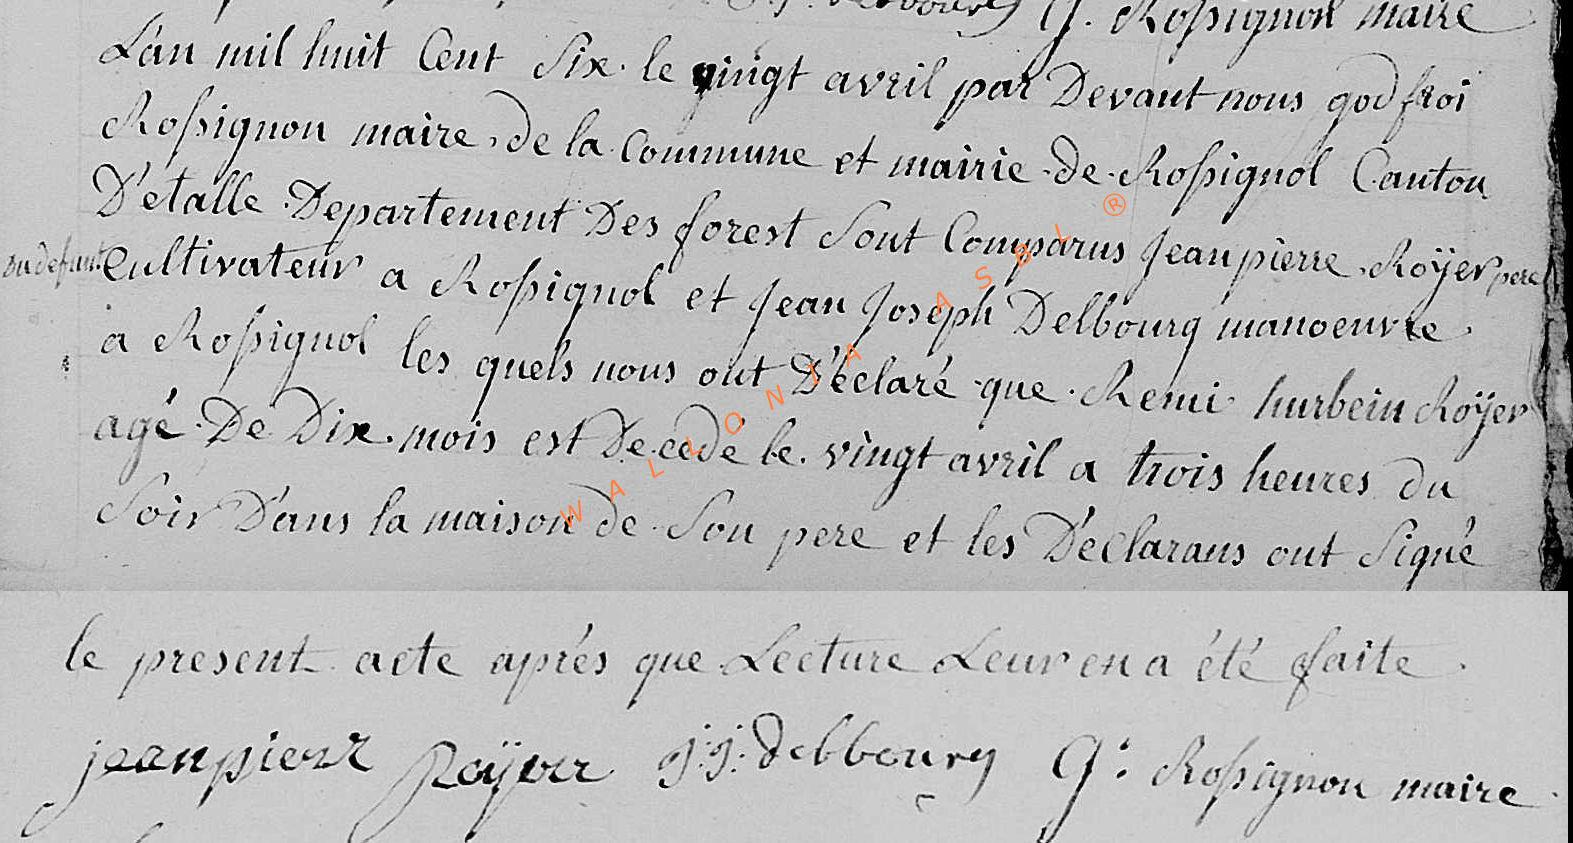 G. Rossignon maire
L'an mil huit Cent Six le vingt avril par Devant nous godfroi
Rossignon maire de la Commune et mairie de Rossignol Canton
D'etalle Departement Des forest Sont Comparus Jean pierre Roÿer pere
Du defunt Cultivateur a Rossignol et Jean Joseph Delbourg manoeuvre
a Rossignol les quels nous ont Déclaré que Remi hurbein Roÿer
agé De Dix mois est Decedé le vingt avril a trois heures du
Soir Dans la maison de Son pere et les Déclarans ont Signé
le present acte aprés que Lecture Leur en a été faite
jeanpierr Roÿerr J:J: Delbourg G: Rossignon maire
WALLONIA ASBL ®